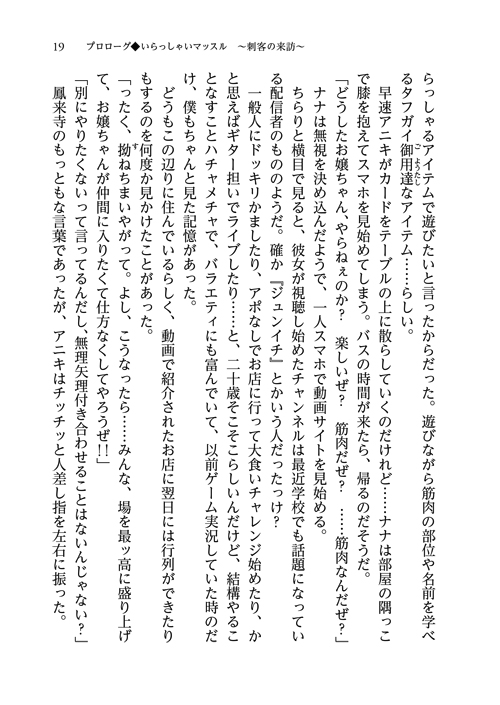 19　プロローグ◆いらっしゃいマッスル　〜刺客の来訪〜
らっしゃるアイテムで遊びたいと言ったからだった。遊びながら筋肉の部位や名前を学べ
るタフガイ御用達なアイテム……らしい。
ごようたし
　早速アニキがカードをテーブルの上に散らしていくのだけれど……ナナは部屋の隅っこ
で膝を抱えてスマホを見始めてしまう。バスの時間が来たら、帰るのだそうだ。
「どうしたお嬢ちゃん、やらねぇのか？　楽しいぜ？　筋肉だぜ？　……筋肉なんだぜ？」
　ナナは無視を決め込んだようで、一人スマホで動画サイトを見始める。
　ちらりと横目で見ると、彼女が視聴し始めたチャンネルは最近学校でも話題になってい
る配信者のもののようだ。確か『ジュンイチ』とかいう人だったっけ？
　一般人にドッキリかましたり、アポなしでお店に行って大食いチャレンジ始めたり、か
と思えばギター担いでライブしたり……と、二十歳そこそこらしいんだけど、結構やるこ
となすことハチャメチャで、バラエティにも富んでいて、以前ゲーム実況していた時のだ
け、僕もちゃんと見た記憶があった。
　どうもこの辺りに住んでいるらしく、動画で紹介されたお店に翌日には行列ができたり
もするのを何度か見かけたことがあった。
「ったく、拗ねちまいやがって。よし、こうなったら……みんな、場を最ッ高に盛り上げ
す
て、お嬢ちゃんが仲間に入りたくて仕方なくしてやろうぜ!!」
「別にやりたくないって言ってるんだし、無理矢理付き合わせることはないんじゃない？」
　鳳来寺のもっともな言葉であったが、アニキはチッチッと人差し指を左右に振った。